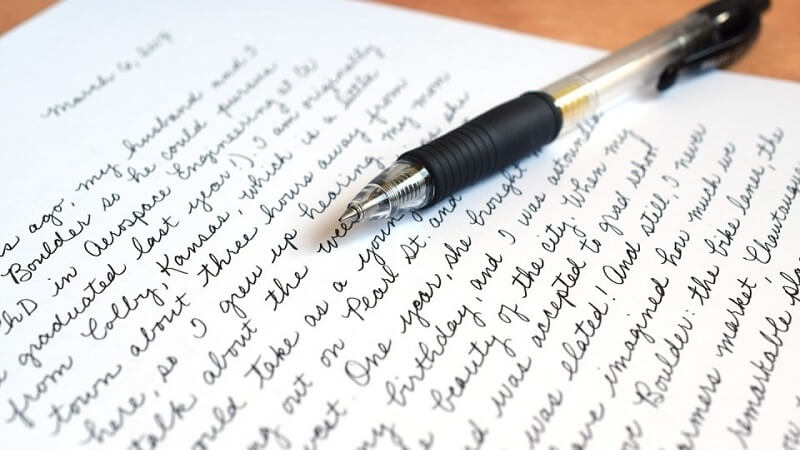 March 6, 2019
ago, my husband and I
Boulder so he could pursue
PhD in Aerospace Engineering at CU
graduated last year!) I am originally
from Colby, Kansas, which is a little
town about three hours away from
here, so I grew up hearing my mom
talk about the she
would take as a young
out on Pearl St. and
One year, she brought
my birthday, and I was astounded
beauty of the city. When my
was accepted to grad school
was elated! And still, I never
have imagined how much we
Boulder: the bike lanes, the
farmers market, Chautauqua
remarkable